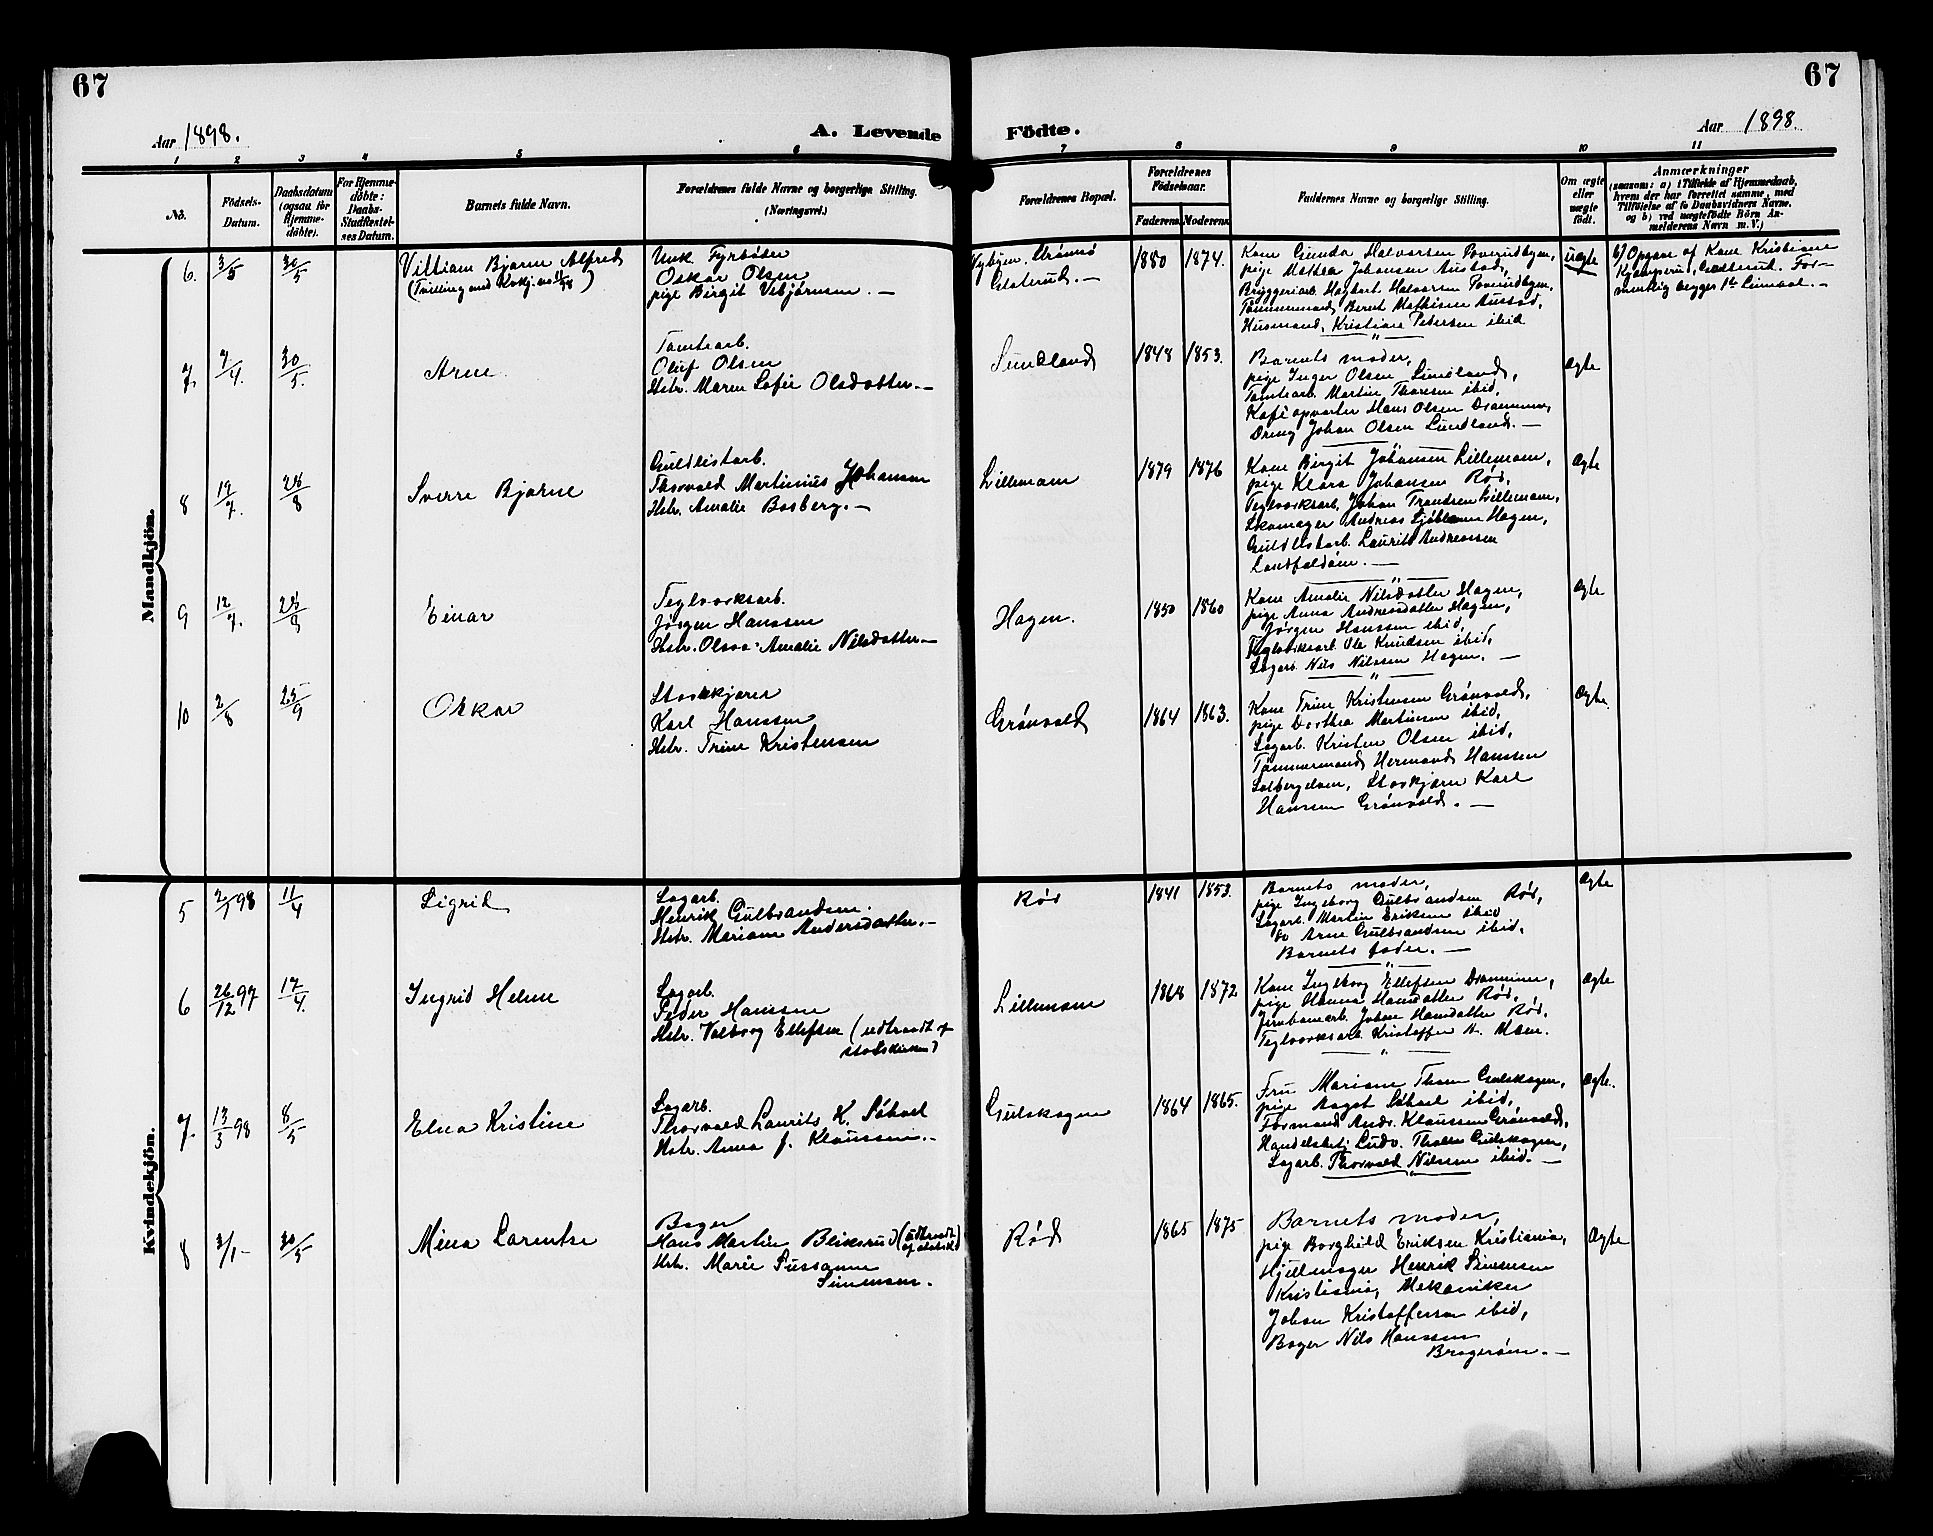 67
67
Aar 1898.
A. Levende
Födte.
Aar 1898.
1 2 3 4 5 6 7 8 9 10 11
No.
Födsels-
Datum.
Daabsdatum
(ogsaa for
Hjemme-
döbte).
For Hjemme-
döbte:
Daabs-
Stadfæstel-
ses Datum.
Barnets fulde Navn.
Forældrenes fulde Navne og borgerlige Stilling.
(Næringsvei.)
Forældrenes Bopæl.
Forældrenes
Födselsaar.
Faderens. Moderens.
Faddernes Navne og borgerlige Stilling.
Om ægte
eller
uægte
födt.
Anmærkninger
(saasom: a) i Tilfælde af Hjemmedaab,
hvem der har forrettet samme, med
Tilföielse af to Daabsvidners Navne.
og b) ved uægtefödte Börn An-
melderens Navn m. V.)
Mandkjön.
6. 3/5 30/5
William Bjarne Alfred
(Tvilling med Kvkj. no 11/98)
Unk Fyrbøder
Oskar Olsen
pige Birgit Vebjørnsen. —
Nybyen, Strømsø
1880 1874.
Kone Gunda Halvorsen
pige Mathea Johansen Austad,
Bryggeriarb. Hagbart Halvorsen
Tømmermand Bernt Mathisen Austad,
Husmand, Kristian Pedersen ibid
uægte
b) Opgave af Kone Kristiane
7. 7/4. 30/5.
Arne.
Tomtearb.
Oluf Olsen
Hstr. Maren Sofie Olsdatter. —
Sundland
1848 1853.
Barnets moder,
pige Inger Olsen Sundland,
Tomtearb. Martin Thoresen ibid,
Kafeopvarter Hans Olsen Drammen,
Dreng Johan Olsen Sundland. —
Ægte
8 19/7. 28/8
Sverre Bjarne
Guldlistarb.
Thorvald Martinius Johansen
Hstr. Amalie Bosberg. —
Lillemoen
1879 1876
Kone Birgit Johansen Lillemoen,
pige Klara Johansen Rød,
Teglverksarb. Johan Trondsen Lillemoen,
Skomager Andreas Sjøblom Hagen,
Guldlistarb. Laurits Andreassen
Landfaldøen. —
Ægte
9 12/7. 25/9
Einar
Teglverksarb.
Jørgen Hanssen
Hstr. Olava Amalie Nilsdatter —
Hagen.
1850 1860
Kone Amalie Nilsdatter Hagen,
pige Anna Andreasdatter Hagen,
Jørgen Hanssen ibid,
Teglverksarb. Ole Knudsen ibid,
Sagarb. Nils Nilssen Hagen. —
Ægte
10 2/8 25/9
Oskar
Karl Hanssen
Hstr. Trine Kristensen
Grønvold
1864 1863.
Kone Trine Kristensen Grønvold,
pige Dorthea Martinsen ibid,
Sagarb. Kristen Olsen ibid,
Tømmermand Hermand Hanssen
Solbergelven, Karl
Hansen Grønvold. —
Ægte.
Kvindekjön.
5 2/1 98 11/4
Sigrid
Sagarb.
Henrik Gulbrandsen.
Hstr. Mariane Andersdatter. —
Rød
1841 1853.
Barnets moder,
pige Ingeborg Gulbrandsen Rød,
Sagarb. Martin Eriksen ibid
do Arne Gulbrandsen ibid,
Barnets fader. —
Ægte
6 26/12 97 17/4.
Ingrid Helene
Sagarb.
Peder Hanssen
Hstr. Valborg Ellefsen (udtraadt af
statskirken)
Lillemoen
1868 1872
Kone Ingeborg Ellefsen Drammen,
pige Hanna Hansdatter Rød,
Jernbanearb. Johan Hansdatter Rød.
Teglverksarb. Kristoffer H. Moen.
Ægte
7. 13/3 98 8/5
Elna Kristine
Sagarb.
Thorvald Laurits K. Søhoel
Hstr. Anna J. Klaussen. —
Gulskogen
1864 1865.
Fru Mariane Thoen Gulskogen,
pige Aagot Søhoel ibid,
Formand Andr. Klaussen Grønvold,
Handelsbetj. Ludv. Thoen Gulskogen,
Sagarb. Thorvald Nilssen ibid. —
Ægte.
8 3/1 - 30/5
Mina Larentse
Bager
Hans Martin Bliksrud (udtraadt
af statsk.)
Hstr. Marie Sussanne
Simensen.
Rød
1865 1875
Barnets moder,
pige Borghild Eriksen Kristiania,
Hjulmager Henrik Simensen
Kristiania, Mekaniker
Johan Kristoffersen ibid,
Bager Nils Hanssen
Bragerøen. —
Ægte